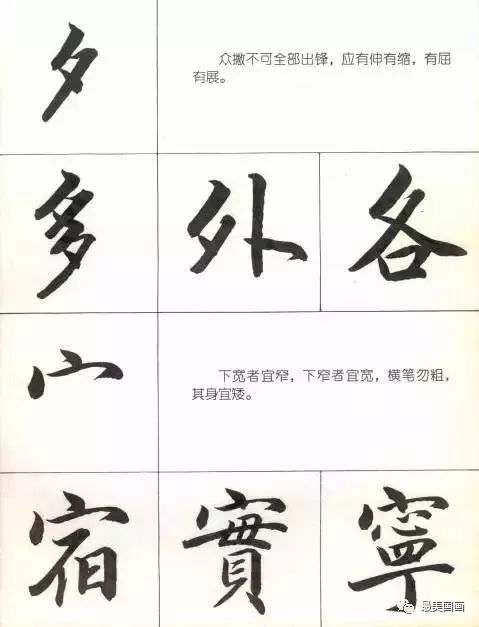 夕
众撇不可全部出锋，应有伸有缩，有屈
有展。
多 外 各
宀
下宽者宜窄，下窄者宜宽，横笔勿粗，
其身宜矮。
宿 實 寧
最美国画